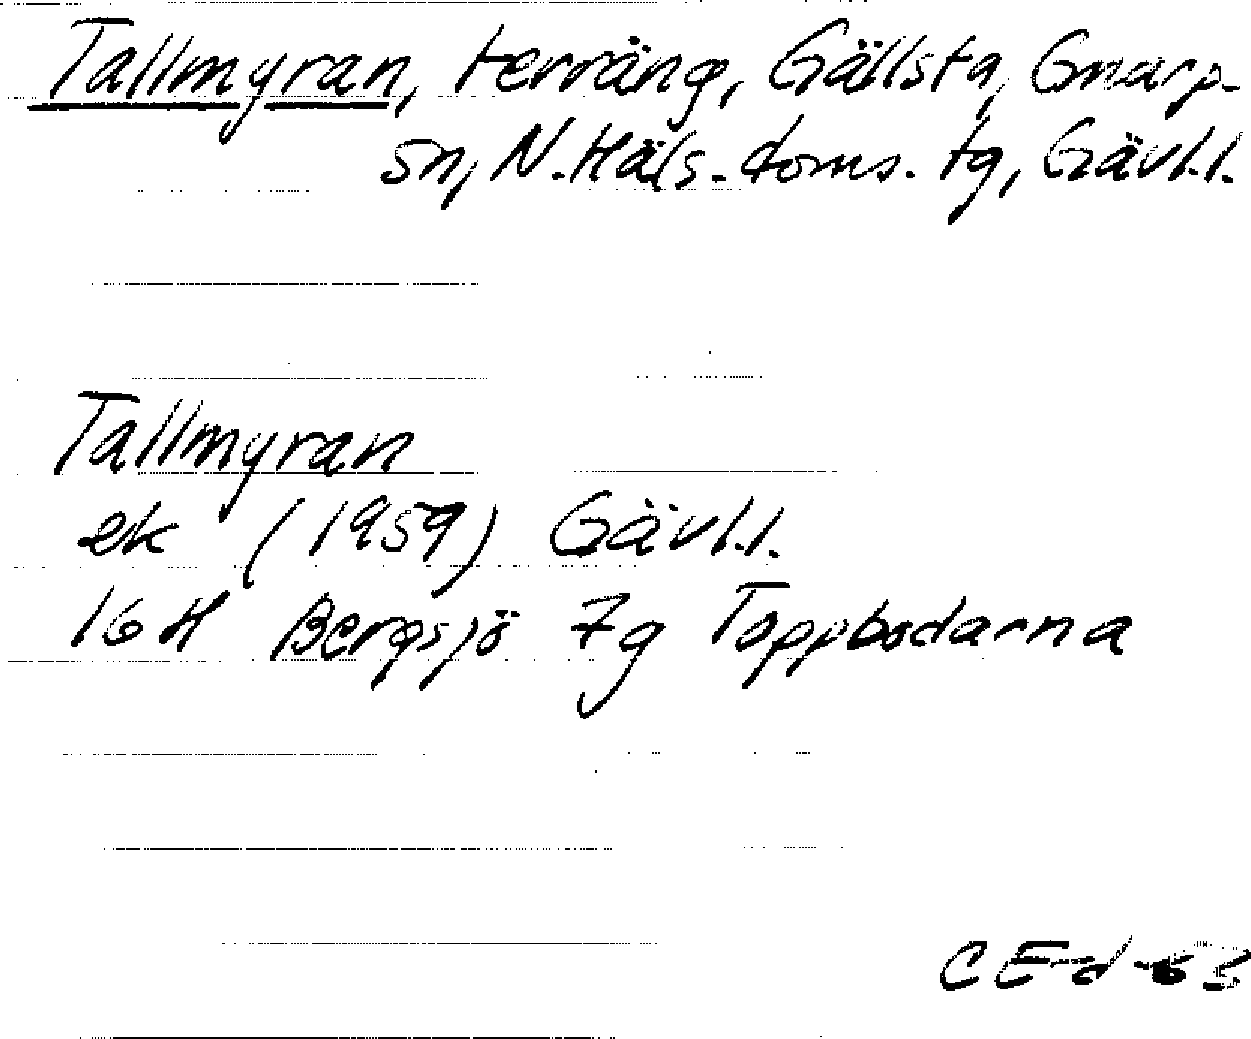 Tallmyran, terräng, Gällsta, Gnarp-
sn, N. Häls. doms. tg, Gävl.l.
Tallmyran
ek (1959) Gävl.l.
16H Bergsjö 7g Toppbodarna